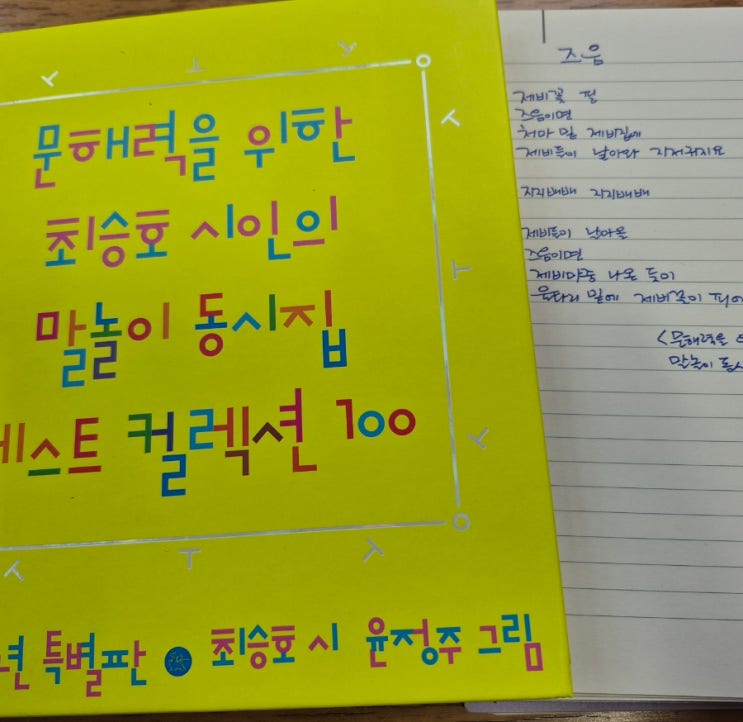 문해력을 위한
최승호 시인의
말놀이 동시집
베스트 컬렉션 100
특별판 최승호 시 윤정주 그림
즈음
제비꽃 필
즈음이면
처마 밑 제비집에
제비들이 날아와 지저귀지요
지지배배 지지배배
제비들이 날아올
즈음이면
제비마중 나온 듯이
울타리 밑에 제비꽃이 피어
<문해력을
말놀이 동시